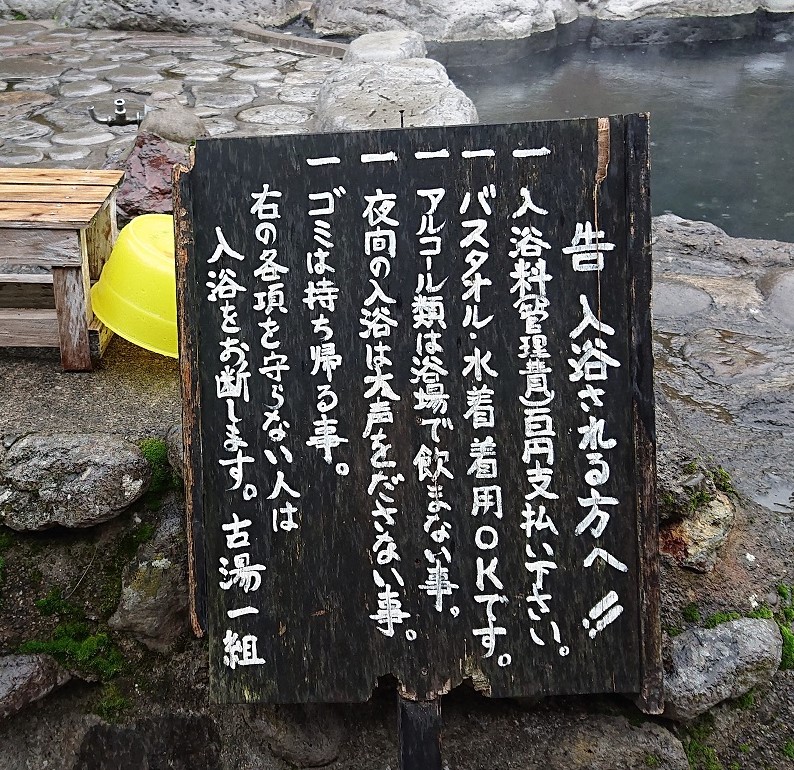 告 入浴される方へ!!
一 入浴料(管理費)百円支払い下さい。
一 バスタオル・水着着用OKです。
一 アルコール類は浴場で飲まない事。
一 夜間の入浴は大声をださない事。
一 ゴミは持ち帰る事。
右の各項を守らない人は
入浴をお断します。 古湯一組